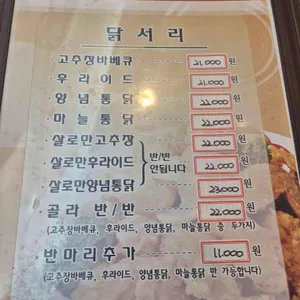 닭서리
·고추장바베큐 21,000 원
·후라이드 21,000 원
·양념통닭 22,000 원
·마늘통닭 22,000 원
·살로만고추장 22,000 원
·살로만후라이드 22,000 원
반/반
안됩니다
·살로만양념통닭 23,000 원
·골라 반/반 22,000 원
(고추장바베큐, 후라이드, 양념통닭, 마늘통닭 중 두가지)
반마리추가 11,000 원
(고추장바베큐, 후라이드, 양념통닭, 마늘통닭 만 가능합니다)